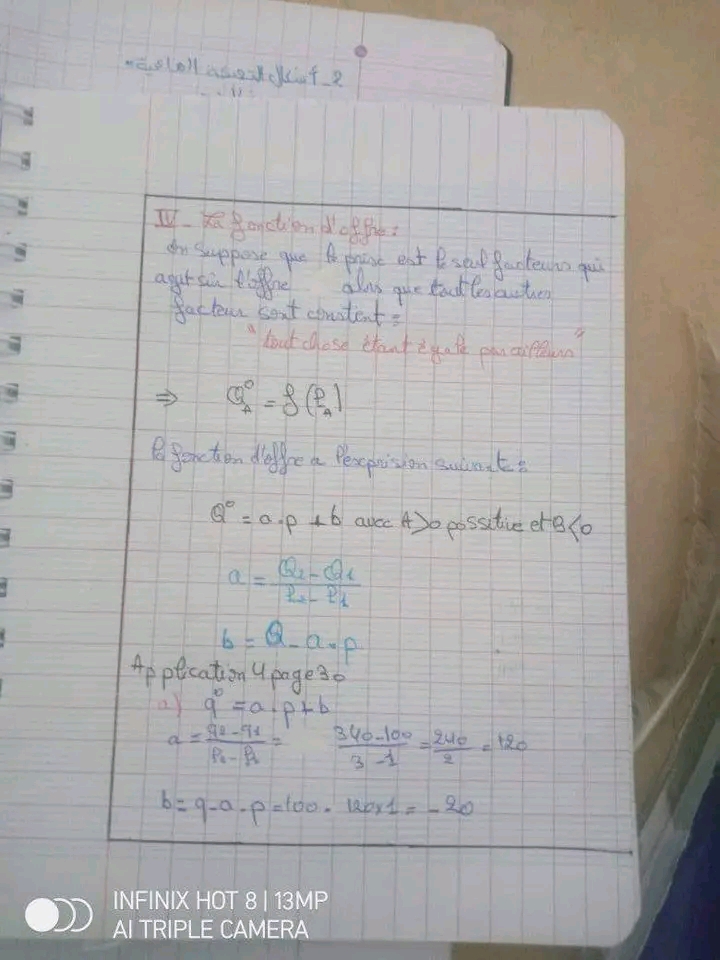 2-أشكال
IV- La fonction d'offre :
On suppose que le prise est le seul facteurs qui
agit sur l'offre alors que tout les autres
facteur sont constent :
"tout chose étant égale par ailleurs"
⇒ Q°A = f(PA)
la fonction d'offre a l'exprision suivante :
Q° = a.p + b avec A>0 possitive et B<0
a = Q2 - Q1 / P2 - P1
b = Q - a . p
Application 4 page 30
a) q° = a . p + b
a = q2 - q1 / P2 - P1 = 340-100 / 3-1 = 240 / 2 = 120
b = q - a - p = 100 - 120x1 = -20
INFINIX HOT 8 | 13MP
AI TRIPLE CAMERA